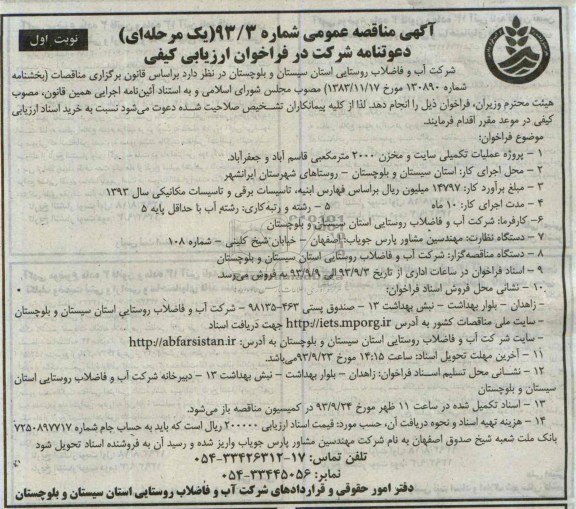 آگهی مناقصه عمومی شماره ۹۳/۳(یک مرحله‌ای)
دعوتنامه شرکت در فراخوان ارزیابی کیفی
نوبت اول
شرکت آب و فاضلاب روستایی استان سیستان و بلوچستان در نظر دارد براساس قانون برگزاری مناقصات (بخشنامه
شماره ۱۳۰۸۹۰ مورخ ۱۳۸۳/۱۱/۱۷) مصوب مجلس شورای اسلامی و به استناد آئین‌نامه اجرایی همین قانون، مصوب
هیئت محترم وزیران، فراخوان ذیل را انجام دهد. لذا از کلیه پیمانکاران تشخیص صلاحیت شده دعوت می‌شود نسبت به خرید اسناد ارزیابی
کیفی در موعد مقرر اقدام فرمایند.
موضوع فراخوان:
۱ – پروژه عملیات تکمیلی سایت و مخزن ۲۰۰۰ مترمکعبی قاسم آباد و جعفرآباد.
۲ – محل اجرای کار: استان سیستان و بلوچستان – روستاهای شهرستان ایرانشهر
۳ – مبلغ برآورد کار: ۱۴۷۹۷ میلیون ریال براساس فهارس ابنیه، تاسیسات برقی و تاسیسات مکانیکی سال ۱۳۹۳
۴ – مدت اجرای کار: ۱۰ ماه ۵ – رشته و رتبه‌کاری: رشته آب با حداقل پایه ۵
۶– کارفرما: شرکت آب و فاضلاب روستایی استان سیستان و بلوچستان
۷ – دستگاه نظارت: مهندسین مشاور پارس جویاب: اصفهان – خیابان شیخ کلینی – شماره ۱۰۸
۸ – دستگاه مناقصه‌گزار: شرکت آب و فاضلاب روستایی استان سیستان و بلوچستان
۹ – اسناد فراخوان در ساعات اداری از تاریخ ۹۳/۹/۳ الی ۹۳/۹/۹ به فروش می‌رسد.
۱۰ – نشانی محل فروش اسناد فراخوان:
– زاهدان – بلوار بهداشت – نبش بهداشت ۱۳ – صندوق پستی ۴۶۳–۹۸۱۳۵ – شرکت آب و فاضلاب روستایی استان سیستان و بلوچستان
– سایت ملی مناقصات کشور به آدرس http://iets.mporg.ir جهت دریافت اسناد
– سایت شرکت آب و فاضلاب روستایی استان سیستان و بلوچستان به آدرس: http://abfarsistan.ir
۱۱ – آخرین مهلت تحویل اسناد: ساعت ۱۴:۱۵ مورخ ۹۳/۹/۲۳می‌باشد.
۱۲ – نشانی محل تسلیم اسناد فراخوان: زاهدان – بلوار بهداشت – نبش بهداشت ۱۳ – دبیرخانه شرکت آب و فاضلاب روستایی استان
سیستان و بلوچستان
۱۳ – اسناد تکمیل شده در ساعت ۱۱ ظهر مورخ ۹۳/۹/۲۴ در کمیسیون مناقصه باز می‌شود.
۱۴ – هزینه تهیه اسناد و نحوه دریافت آن، حسب مورد: قیمت اسناد ارزیابی ۲۰۰۰۰۰ ریال است که باید به حساب جام شماره ۷۲۵۰۸۹۷۷۱۷
بانک ملت شعبه شیخ صدوق اصفهان به نام شرکت مهندسین مشاور پارس جویاب واریز شده و رسید آن به فروشنده اسناد تحویل شود
تلفن تماس: ۱۷–۳۳۴۲۶۳۱۲–۰۵۴
نمابر: ۳۳۴۴۵۰۵۶–۰۵۴
دفتر امور حقوقی و قراردادهای شرکت آب و فاضلاب روستایی استان سیستان و بلوچستان